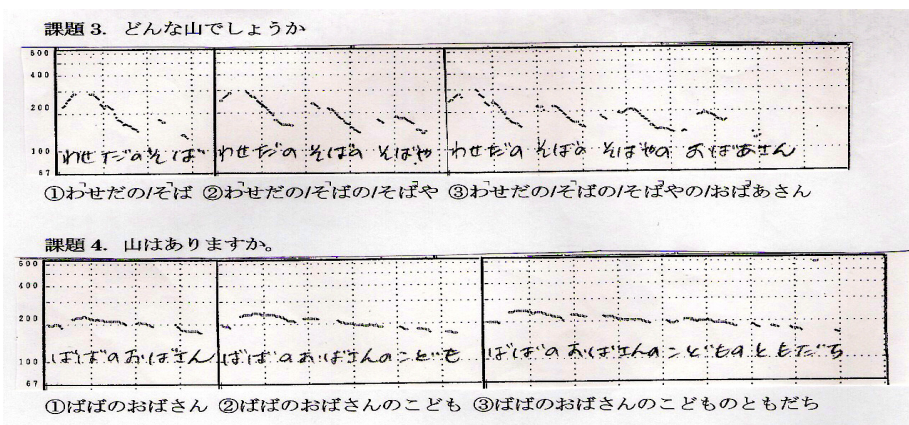 課題3. どんな山でしょうか
500
400
200
100
67
わせだのそば わせだの そばの そばや わせだの そばの そばやの おばあさん
①わ┐せだの/そ┐ば ②わ┐せだの/そ┐ばの/そば┐や ③わ┐せだの/そ┐ばの/そば┐やの/おば┐あさん
課題4. 山はありますか。
500
400
200
100
67
ばばのおばさん ばばのおばさんのこども ばばのおばさんのこどものともだち
①ばばのおばさん ②ばばのおばさんのこども ③ばばのおばさんのこどものともだち